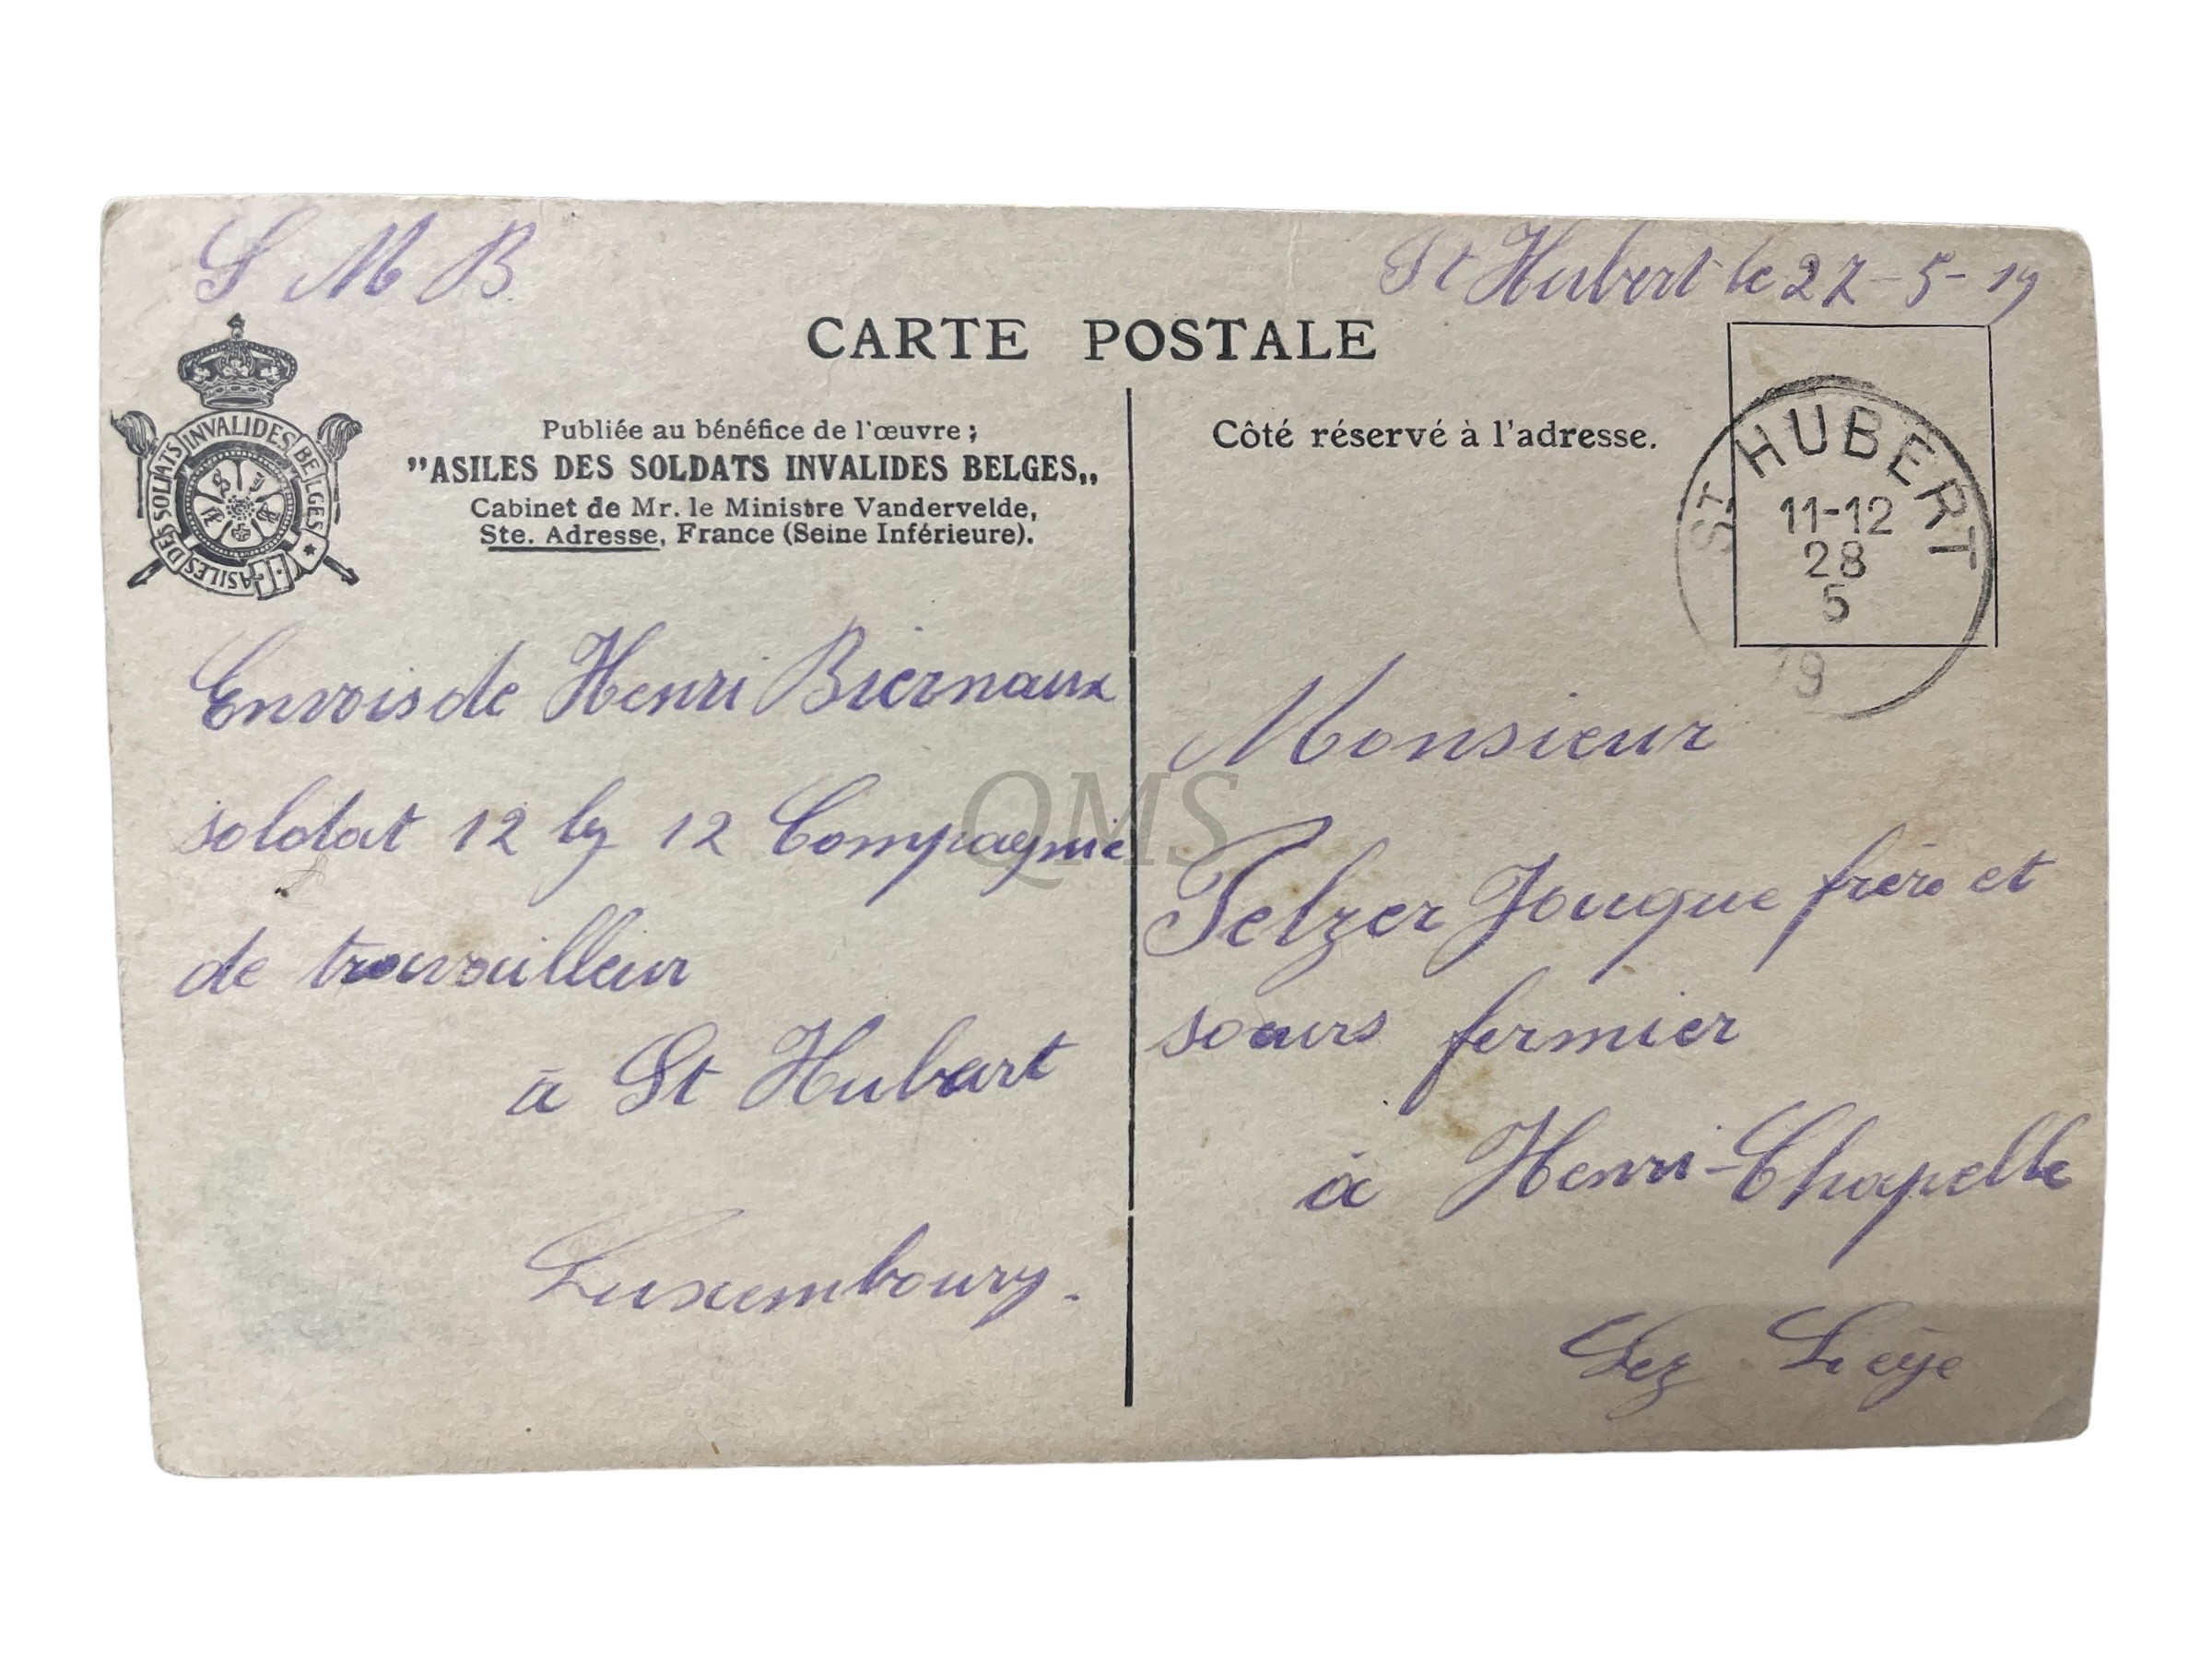 S M B
St Hubert le 27-5-19
CARTE POSTALE
ASILES DES SOLDATS INVALIDES BELGES
Publiée au bénéfice de l'œuvre ;
"ASILES DES SOLDATS INVALIDES BELGES„
Cabinet de Mr. le Ministre Vandervelde,
Ste. Adresse, France (Seine Inférieure).
Envois de Henri Biernaux
soldat 12 by 12 Compagnie
de travailleur
à St Hubert
Luxembourg.
Côté réservé à l'adresse.
ST HUBERT
11-12
28
5
19
Monsieur
Pelzer Jouque frère et
soeurs fermier
à Henri-Chapelle
Lez Liége
QMS